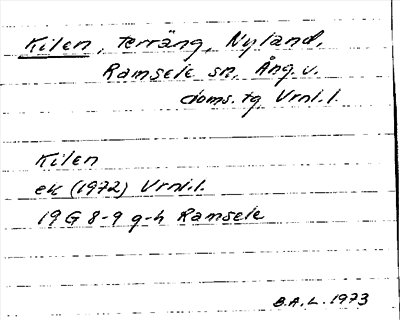 Kilen, terräng, Nyland,
Ramsele sn, Ång. v.
doms. tg Vrnl.l.
Kilen
ek (1972) Vrnl.l.
19 G 8-9 g-h Ramsele
B.A.L. 1973